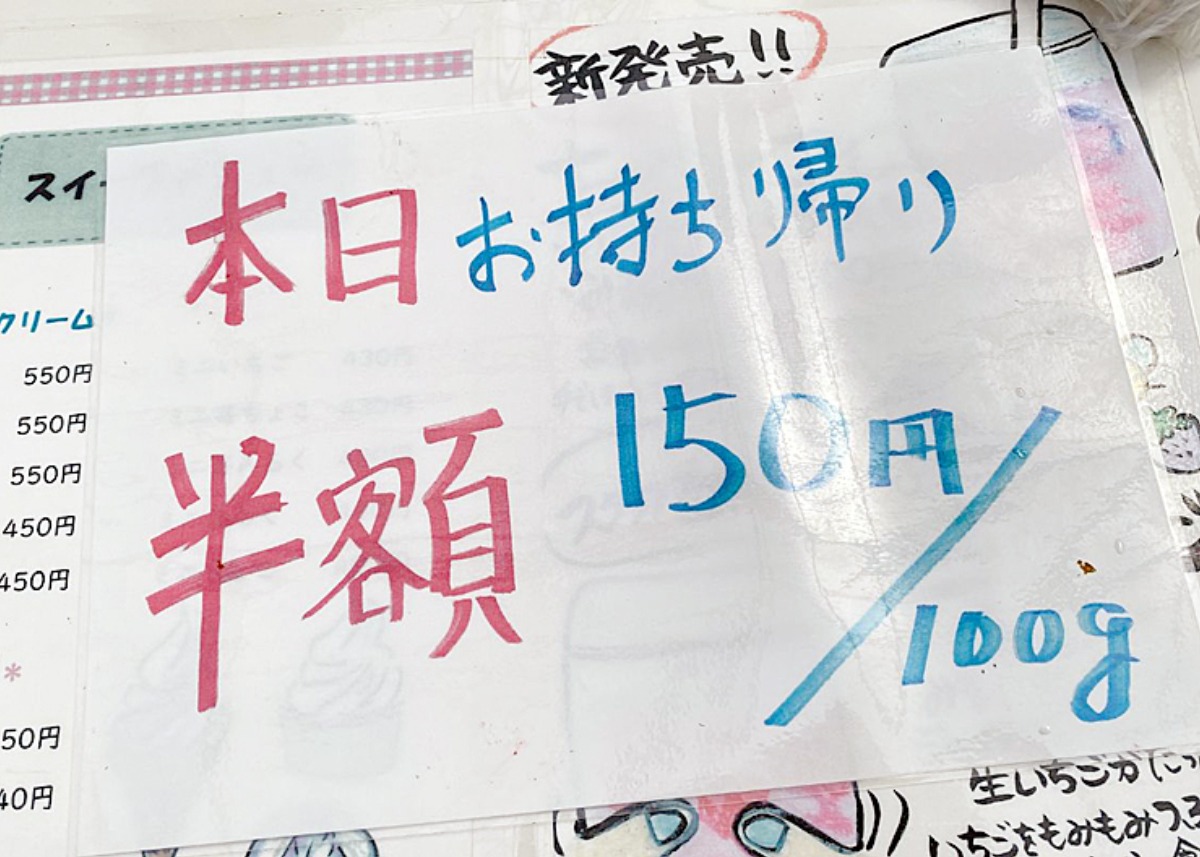 新発売!!
スイー
本日 お持ち帰り
半額 150円/100g
クリーム
550円
550円
550円
450円
450円
*
50円
40円
生いちごが
いちごをもみもみ